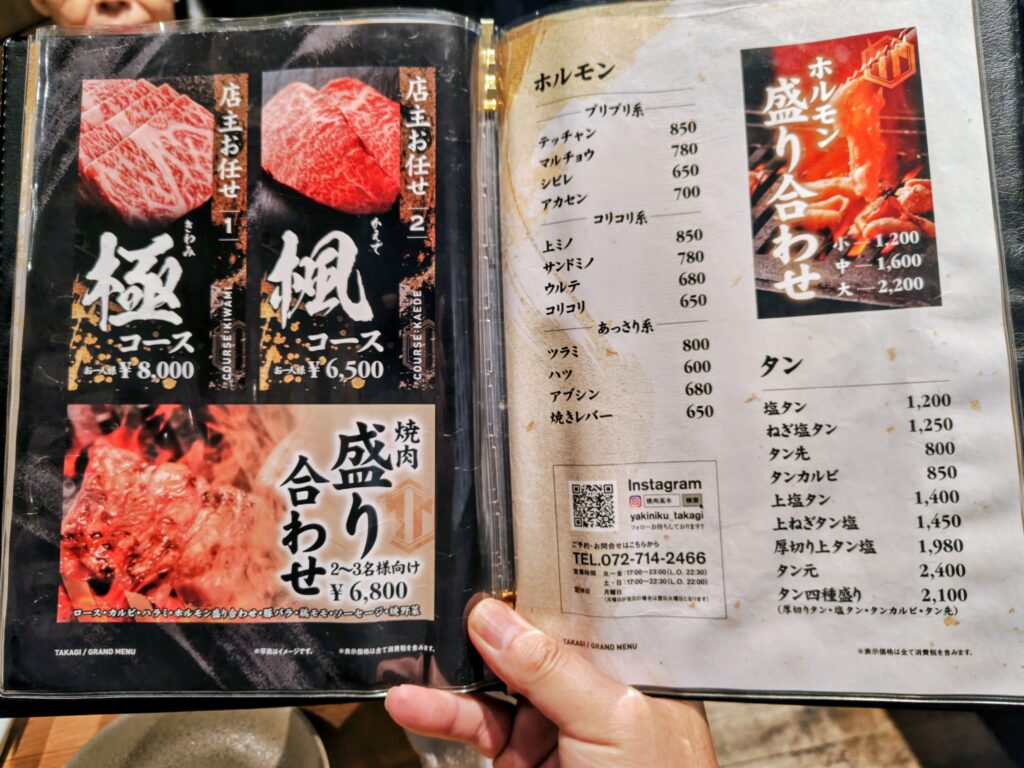 店主お任せ 1
きわみ
極
コース
お一人様 ¥8,000
COURSE:KIWAMI
店主お任せ 2
かえで
楓
コース
お一人様 ¥6,500
COURSE:KAEDE
焼肉
盛り
合わせ
2〜3名様向け
¥6,800
ロース・カルビ・ハラミ・ホルモン盛り合わせ・豚バラ・鶏モモ・ソーセージ・焼野菜
TAKAGI / GRAND MENU
※写真はイメージです。
※表示価格は全て消費税を含みます。
ホルモン
プリプリ系
テッチャン 850
マルチョウ 780
シビレ 650
アカセン 700
コリコリ系
上ミノ 850
サンドミノ 780
ウルテ 680
コリコリ 650
あっさり系
ツラミ 800
ハツ 600
アブシン 680
焼きレバー 650
Instagram
焼肉高木 検索
yakiniku_takagi
フォローお待ちしております!!
ご予約・お問合せはこちらから
TEL.072-714-2466
営業時間 火〜金:17:00〜23:00(L.O. 22:30)
土・日:17:00〜22:30(L.O. 22:00)
定休日 月曜日
(月曜日が祝日の場合は翌日火曜日となります)
TAKAGI / GRAND MENU
ホルモン
盛り合わせ
小 — 1,200
中 — 1,600
大 — 2,200
タン
塩タン 1,200
ねぎ塩タン 1,250
タン先 800
タンカルビ 850
上塩タン 1,400
上ねぎタン塩 1,450
厚切り上タン塩 1,980
タン元 2,400
タン四種盛り 2,100
(厚切りタン・塩タン・タンカルビ・タン先)
※表示価格は全て消費税を含みます。